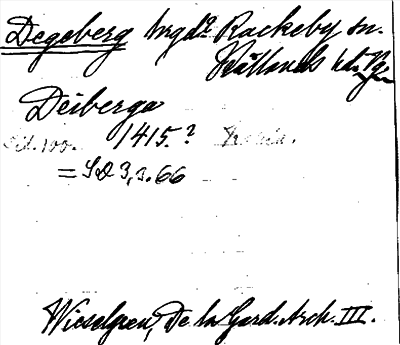 Degeberg hrgd. Rackeby sn.
Kållands hd. Vg.
Deiberga
1415.?
= SD 3, s. 66
Wieselgren, De la Gard. Arch. III.